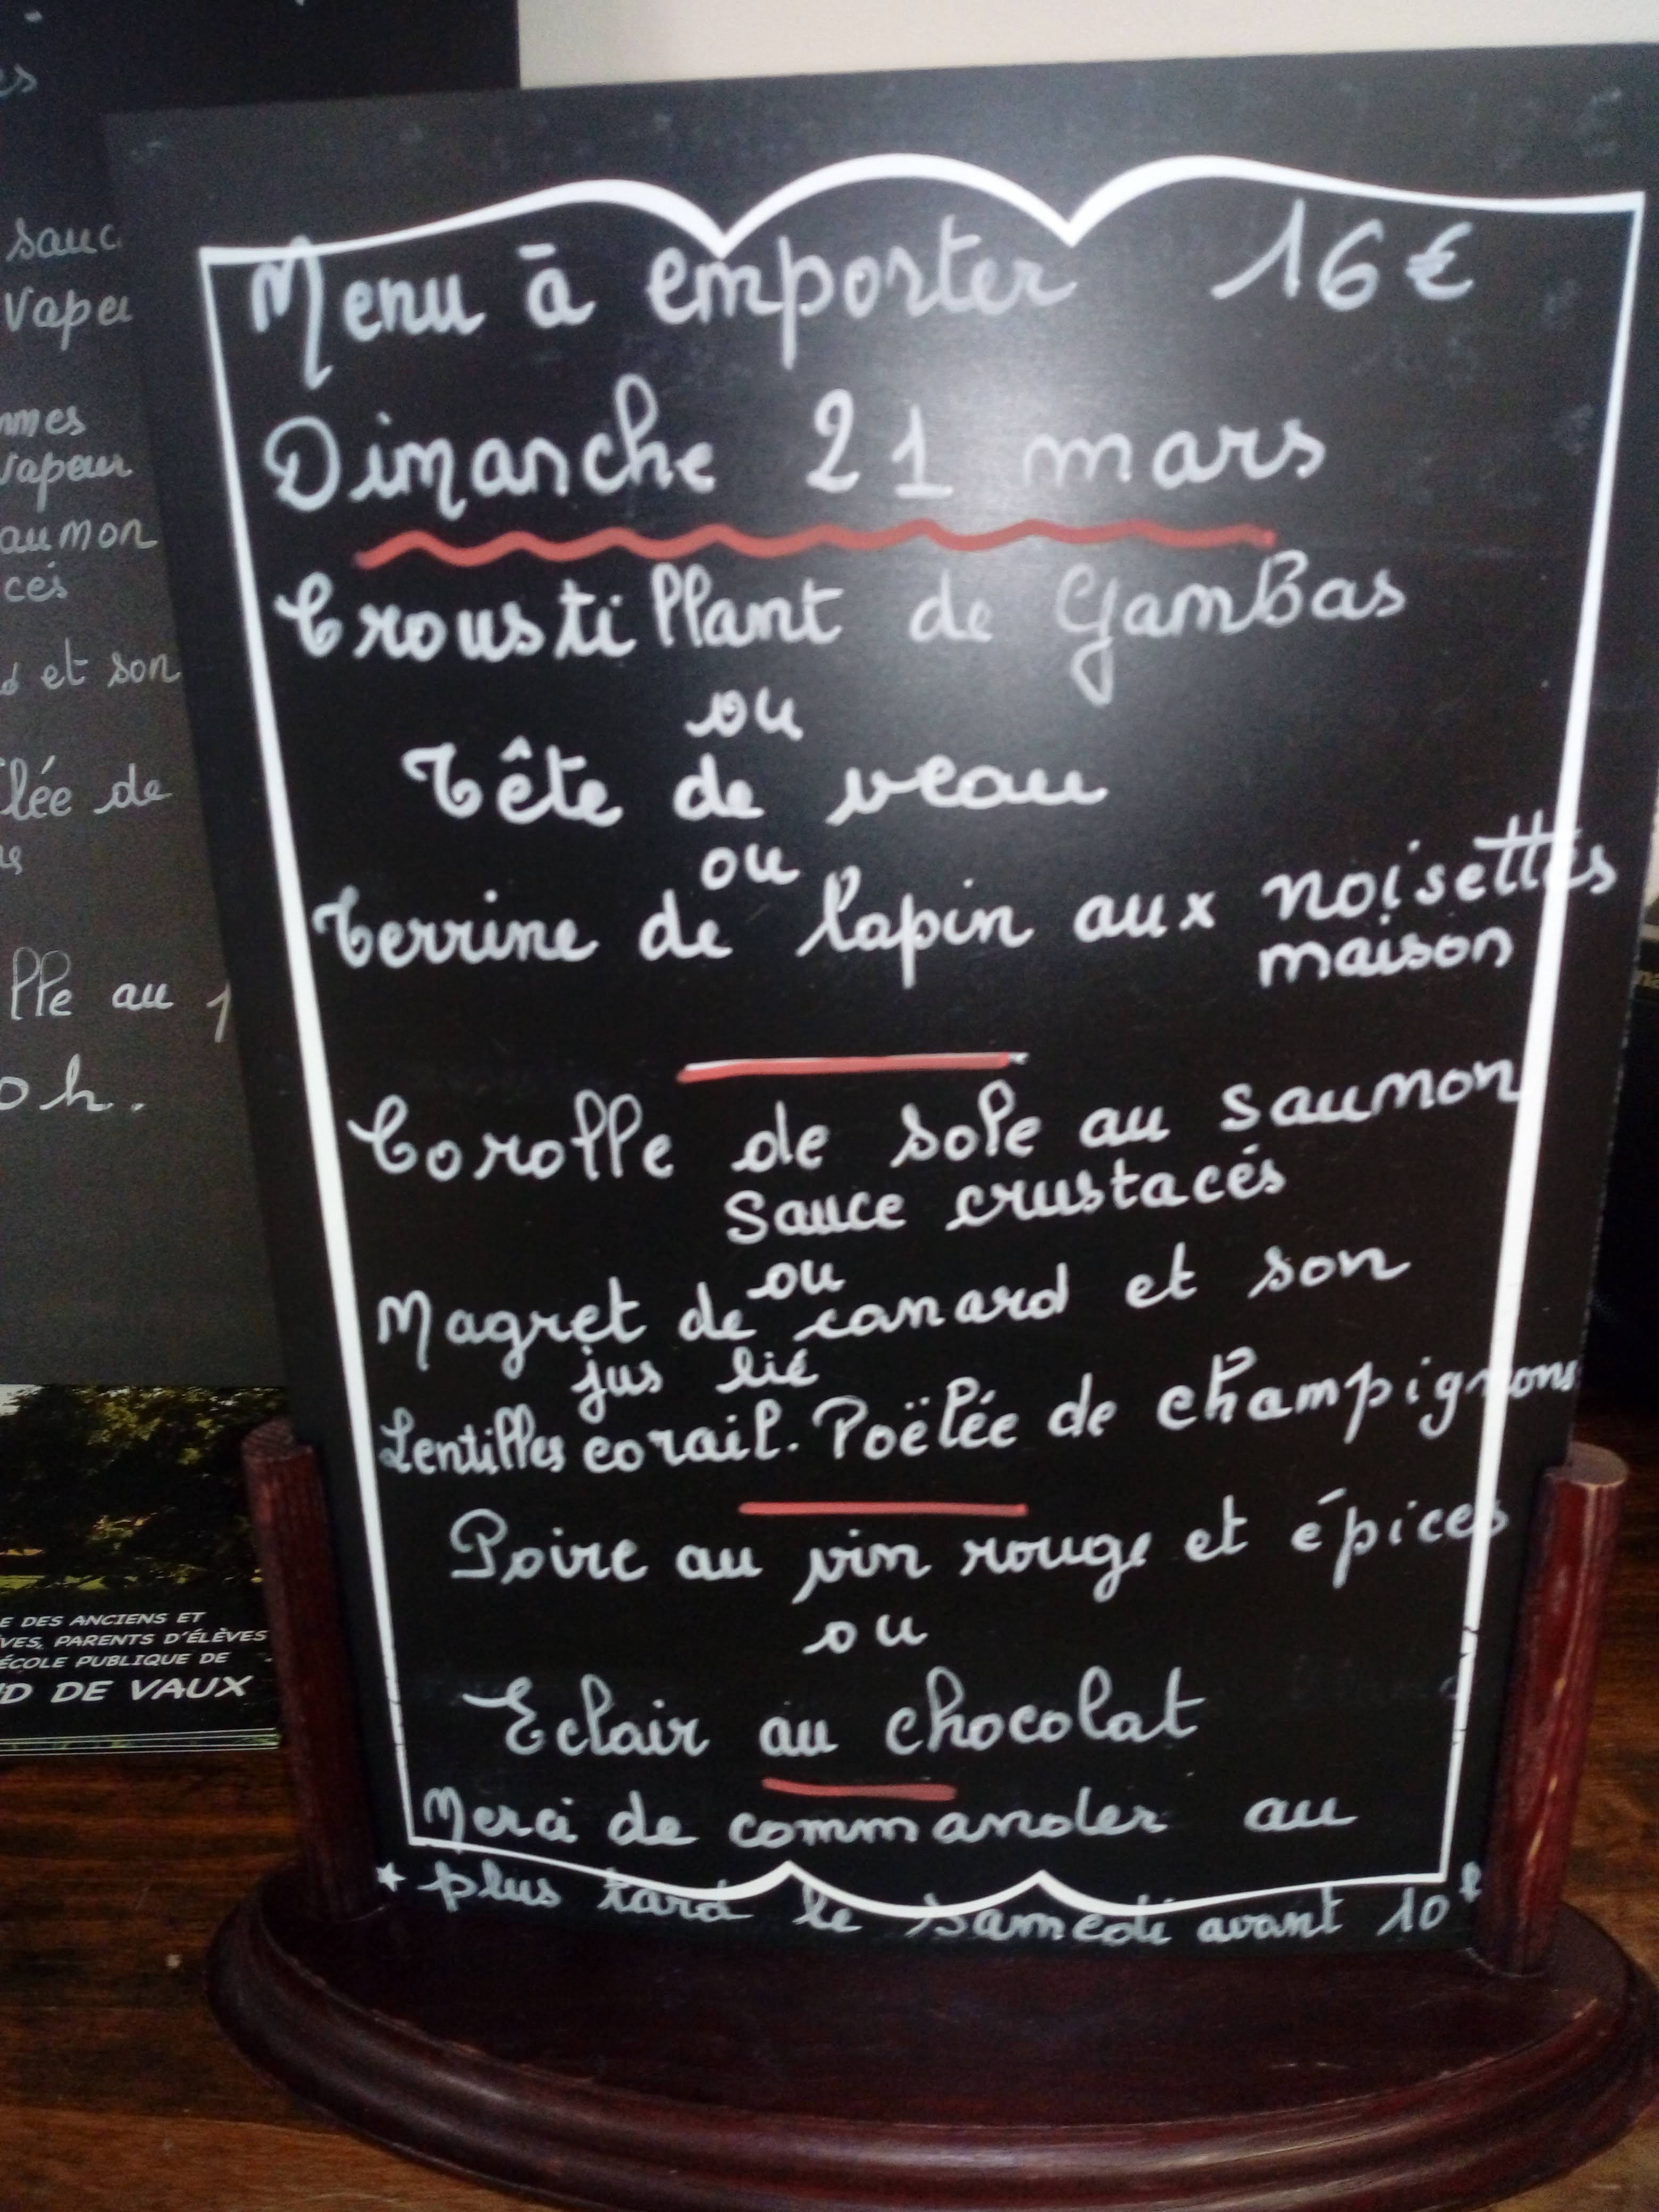 Menu à emporter 16€
Dimanche 21 mars
Croustillant de GamBas
ou
Tête de veau
ou
Terrine de lapin aux noisettes
maison
Corolle de sole au saumon
Sauce crustacés
ou
Magret de canard et son
jus lié
Lentilles corail. Poëlée de champignons
Poire au vin rouge et épices
ou
Eclair au chocolat
Merci de commander au
* plus tard le samedi avant 10h
es
sauc
Vapeu
mmes
vapeur
aumon
cés
et son
lée de
lle au
0h.
E DES ANCIENS ET
VES, PARENTS D'ÉLÈVES
ÉCOLE PUBLIQUE DE
D DE VAUX